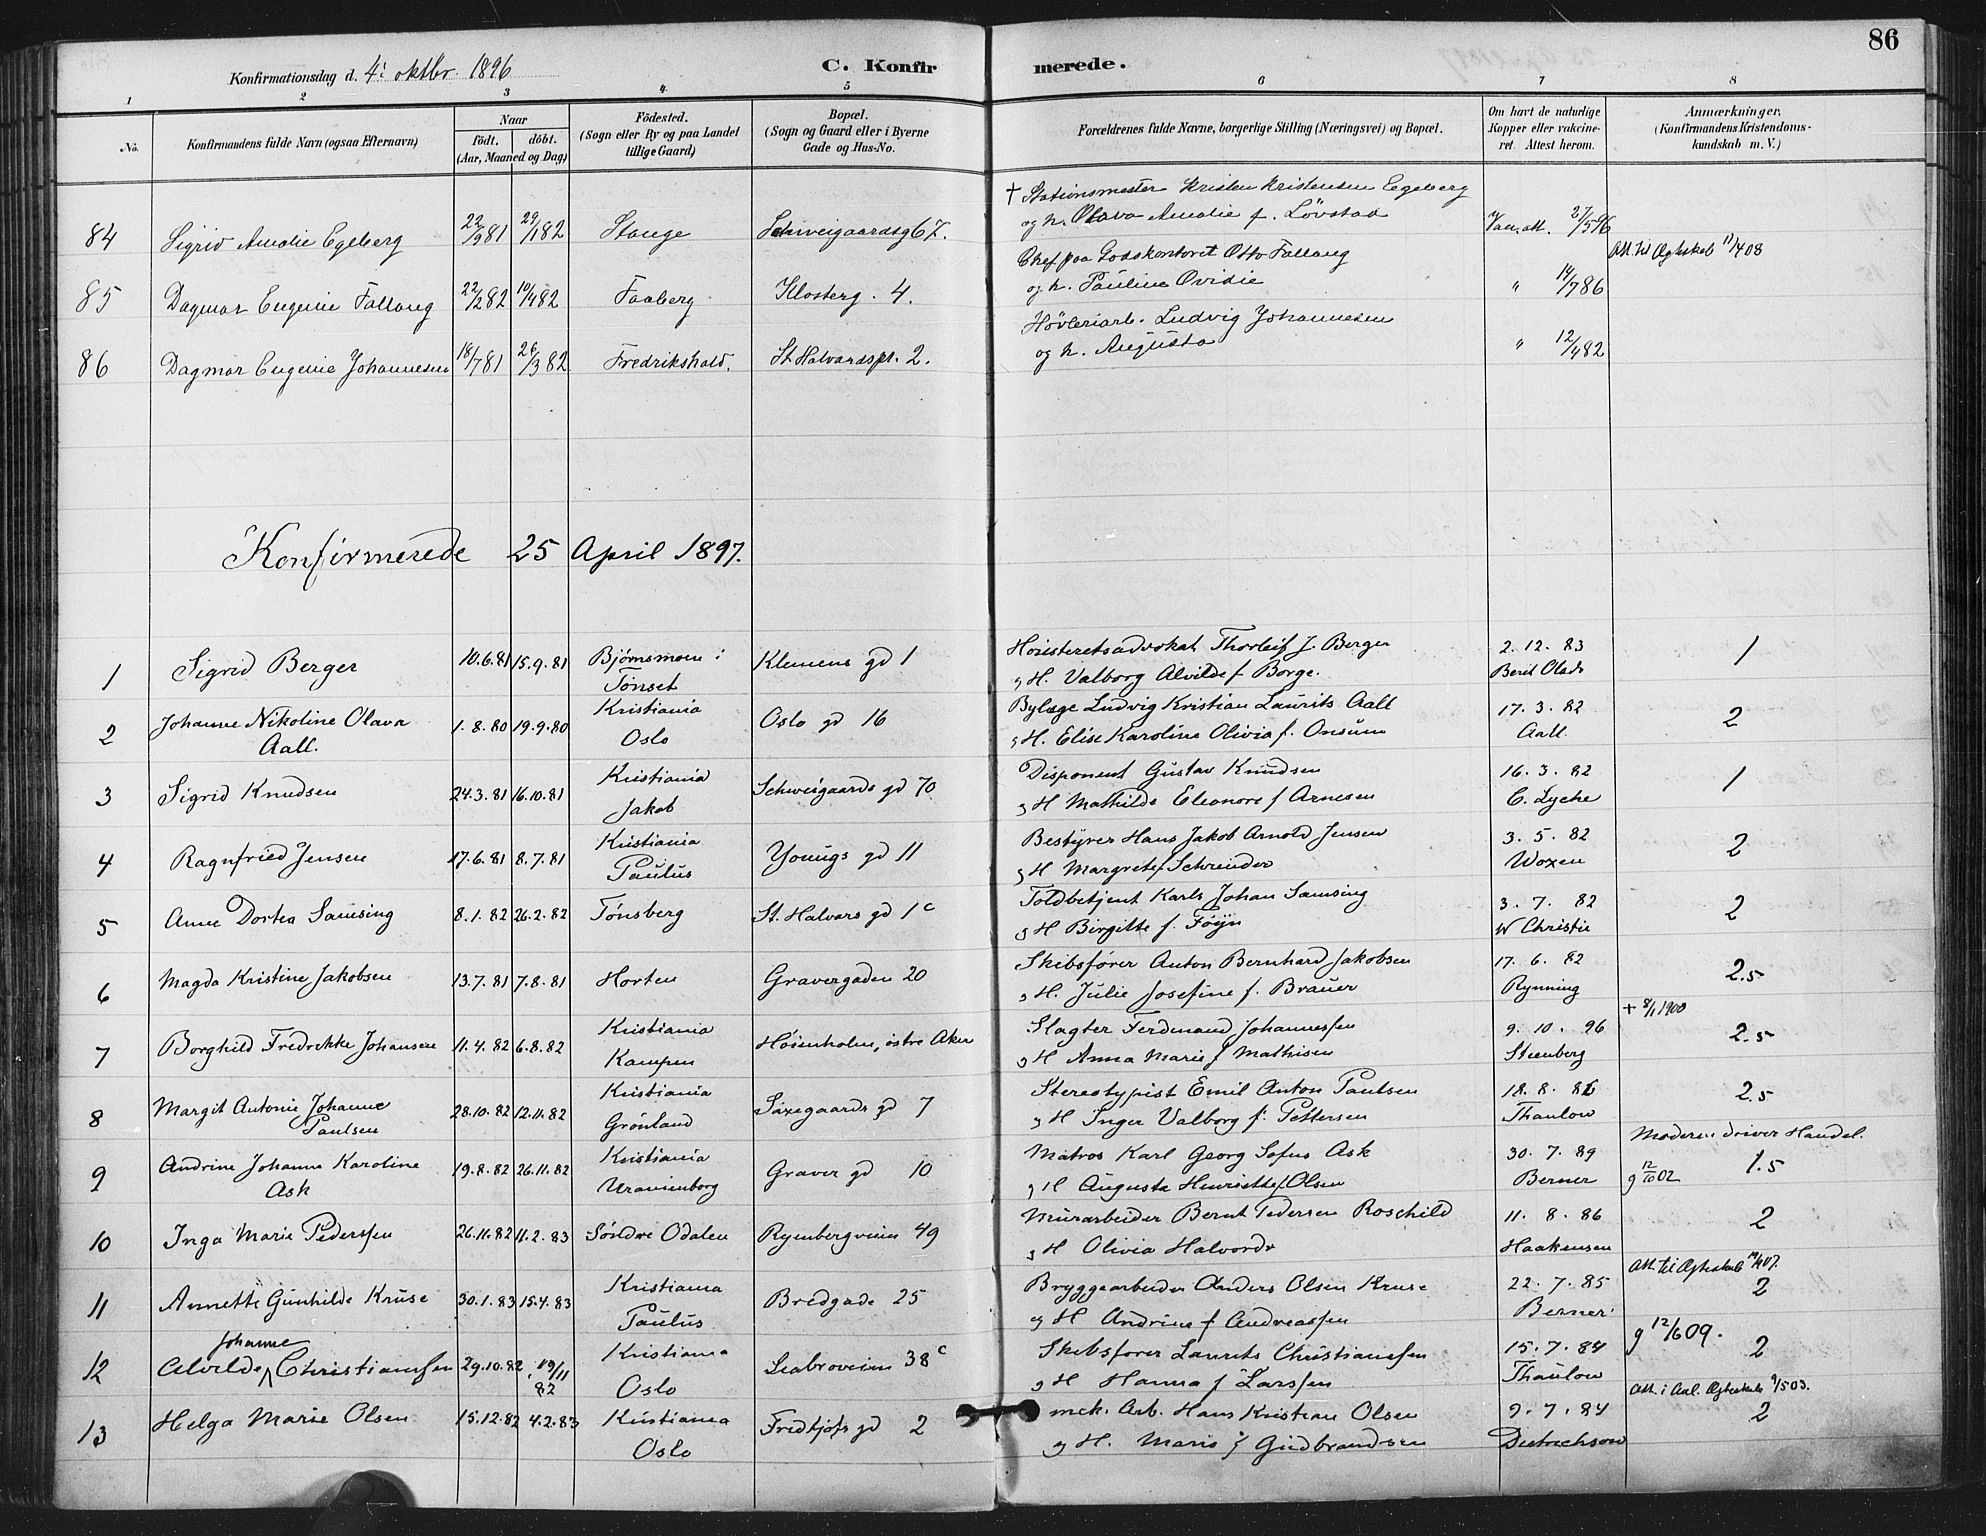 86
Konfirmationsdag d. 4de oktbr. 1896
C. Konfirmerede.
1 2 3 4 5 6 7 8
No.
Konfirmandens fulde Navn (ogsaa Efternavn)
Naar
født. døbt.
(Aar, Maaned og Dag)
Födested.
(Sogn eller By og paa Landet
tillige Gaard)
Bopæl.
(Sogn og Gaard eller i Byerne
Gade og Hus-No.
Forældrenes fulde Navne, borgerlige Stilling (Næringsvei) og Bopæl.
Om havt de naturlige
Kopper eller vakcine-
ret. Attest herom.
Anmærkninger.
(Konfirmandens Kristendoms-
kundskab m. V.)
† Stationsmester Kristen Kristensen Egeberg
84 Sigrid Amalie Egeberg 22/9 81 29/1 82 Stange Schweigaardsg 67. og h. Olava Amalie f. Lövstad Vac. att. 27/5 96
Chef paa Godskontoret Otto Fallang Att. til Ægteskab 11/4 08
85 Dagmar Eugenie Fallang 22/2 82 10/4 82 Faaberg Klosterg. 4. og h. Pauline Ovidie " 14/7 86
Høvleriarb. Ludvig Johannesen
86 Dagmar Eugenie Johannesen 18/7 81 26/3 82 Fredrikshald. St. Halvardspl. 2. og h. Augusta " 12/4 82
Konfirmerede 25 April 1897.
1 Sigrid Berger 10.6.81 15.9.81 Bjørnsmoen i Klemens gd 1 Høiesteretsadvokat Thorleif J. Berger 2. 12. 83 1
Tönset og H. Valborg Alvilde f. Borge. Berit Olads
2 Johanne Nikoline Olava 1.8.80 19.9.80 Kristiania Oslo gd 16 Bylæge Ludvig Kristian Laurits Aall 17. 3. 82 2
Aall. Oslo og H. Elise Karoline Olivia f. Onsum Aall
3 Sigrid Knudsen 24.3.81 16.10.81 Kristiania Schweigaards gd 70 Disponent Gustav Knudsen 16. 3. 82 1
Jakob og H Mathilde Eleonore f Arnesen C. Lyche
4 Ragnfried Jensen 17.6.81 8.7.81 Kristiania Youngs gd 11 Bestyrer Hans Jakob Arnold Jensen 3. 5. 82 2
Paulus og H Margrete f Schreuder Woxen
5 Anne Dortea Samsing 8.1.82 26.2.82 Tönsberg St. Halvars gd 1c Toldbetjent Karls Johan Samsing 3. 7. 82 2
og H Birgitte f. Føyn W Christie
6 Magda Kristine Jakobsen 13.7.81 7.8.81 Horten Gravergaden 20 Skibsfører Anton Bernhard Jakobsen 17. 6. 82 2.5
og H. Julie Josefine f. Brauer Rynning
+ 8/1 1900
7 Borghild Fredrikke Johansen 11.4.82 6.8.82 Kristiania Høienholm, östre Aker Slagter Ferdinand Johannessen 9. 10. 96 2.5
Kampen og H Anna Marie f Mathisen Steenberg
8 Margit Antonie Johanne 28.10.82 12.11.82 Kristiania Saxegaards gd 7 Stereotypist Emil Anton Paulsen 18. 8. 86 2.5
Paulsen Grønland og H Inger Valborg f. Pettersen Thaulow
Moderen driver Handel.
9 Andrine Johanne Karoline 19.8.82 26.11.82 Kristiania Graver gd 10 Matros Karl Georg Sofus Ask 30. 7. 89 1.5
Ask Uranienborg og H Augusta Henriette f Olsen Berner g 12/10 02
10 Inga Marie Pederssen 26.11.82 11.2.83 Söndre Odalen Rymbergveien 49 Murarbeider Bernt Pedersen Roschild 11. 8. 86 2
og H Olivia Halvordr Haakensen
Att. til Ægteskab 19/4 07.
11 Annette Gunhilde Kruse 30.1.83 15.4.83 Kristiania Bredgade 25 Bryggearbeider Anders Olsen Kruse 22. 7. 85 2
Paulus og H Andrine f Andreassen Berner
g 12/6 09.
Johanne
12 Alvilde ʌ Christianssen 29.10.82 19/11 82 Kristiania Seabroveien 38c Skibsfører Laurits Christianssen 15. 7. 84 2
Oslo og H Hanna f Larssen Thaulow
Att. i Aal. Ægteskab 9/5 03.
13 Helga Marie Olsen 15.12.82 4.2.83 Kristiania Fridtjofs gd 2 mek. Arb. Hans Kristian Olsen 9. 7. 84 2
Oslo og H. Marie f Gudbrandsen Dietrichson